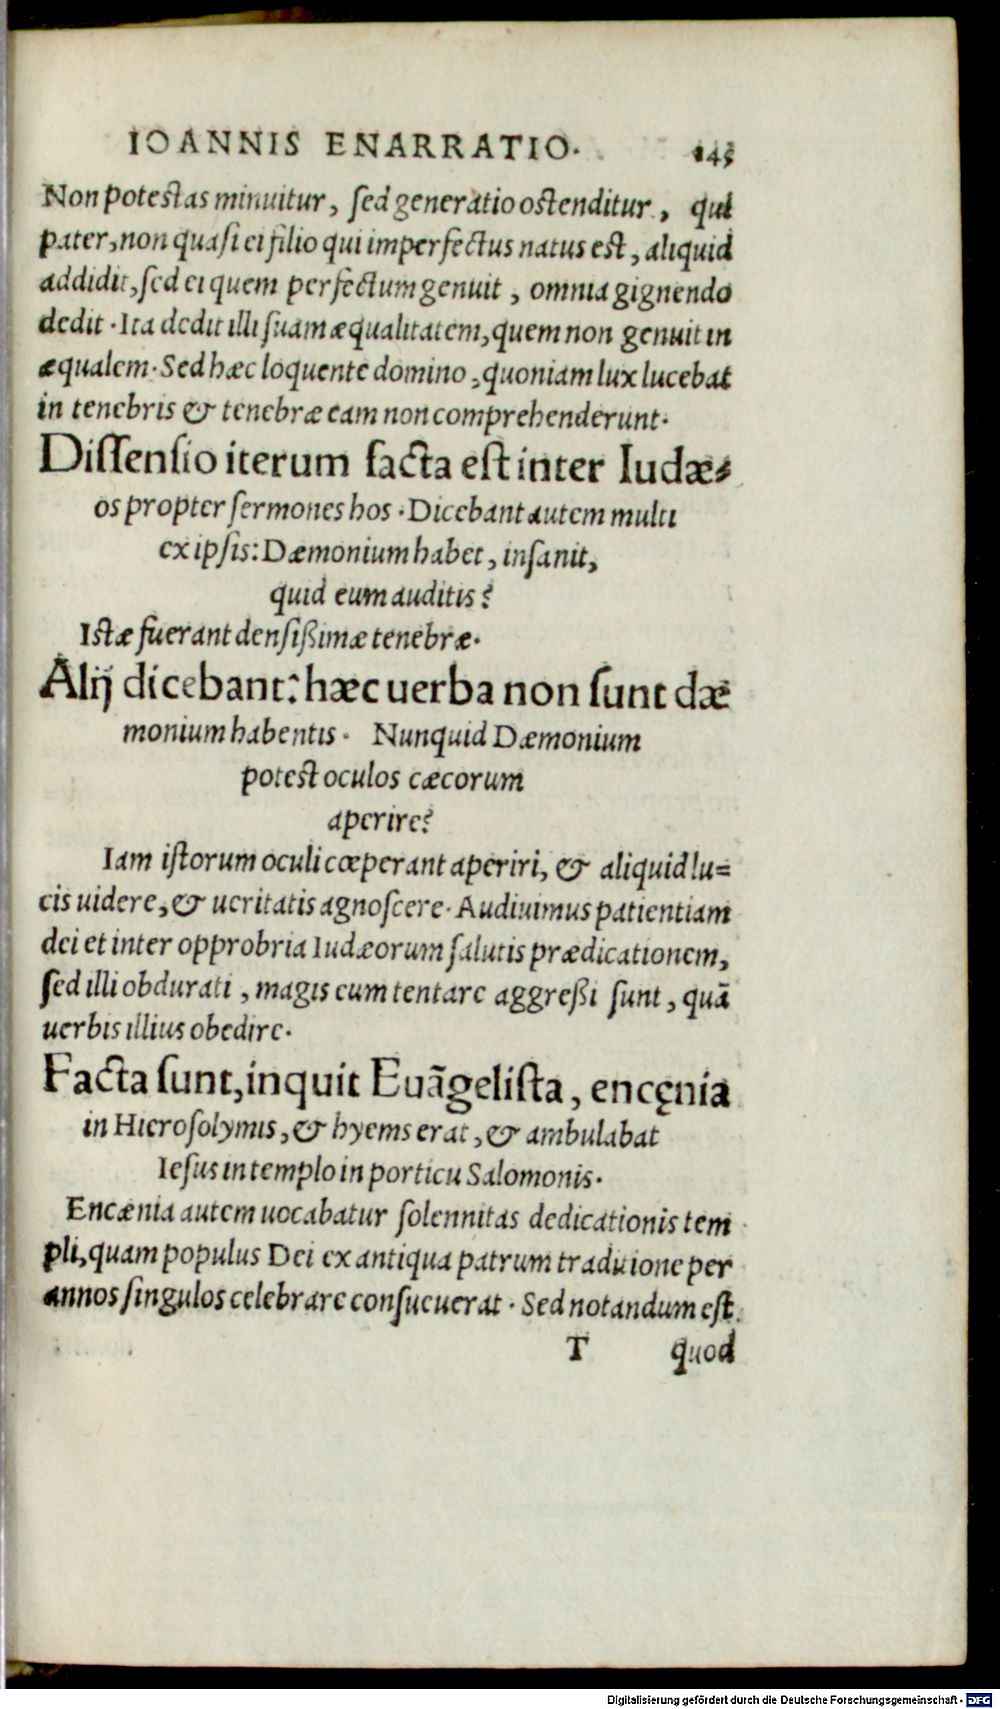 IOANNIS ENARRATIO. 145
Non potestas minuitur, sed generatio ostenditur, qui
pater, non quasi ei filio qui imperfectus natus est, aliquid
addidit, sed ei quem perfectum genuit, omnia gignendo
dedit. Ita dedit illi suam æqualitatem, quem non genuit in
æqualem. Sed hæc loquente domino, quoniam lux lucebat
in tenebris & tenebræ eam non comprehenderunt.
Dissensio iterum facta est inter Iudæ-
os propter sermones hos. Dicebant autem multi
ex ipsis: Dæmonium habet, insanit,
quid eum auditis?
Istæ fuerant densißimæ tenebræ.
Alij dicebant: hæc uerba non sunt dæ
monium habentis. Nunquid Dæmonium
potest oculos cæcorum
aperire?
Iam istorum oculi cœperant aperiri, & aliquid lu=
cis uidere, & ueritatis agnoscere. Audiuimus patientiam
dei et inter opprobria Iudæorum salutis prædicationem,
sed illi obdurati, magis eum tentare aggreßi sunt, quã
uerbis illius obedire.
Facta sunt, inquit Euãgelista, encęnia
in Hierosolymis, & hyems erat, & ambulabat
Iesus in templo in porticu Salomonis.
Encænia autem uocabatur solennitas dedicationis tem
pli, quam populus Dei ex antiqua patrum traditione per
annos singulos celebrare consueuerat. Sed notandum est
T quod
Digitalisierung gefördert durch die Deutsche Forschungsgemeinschaft - DFG